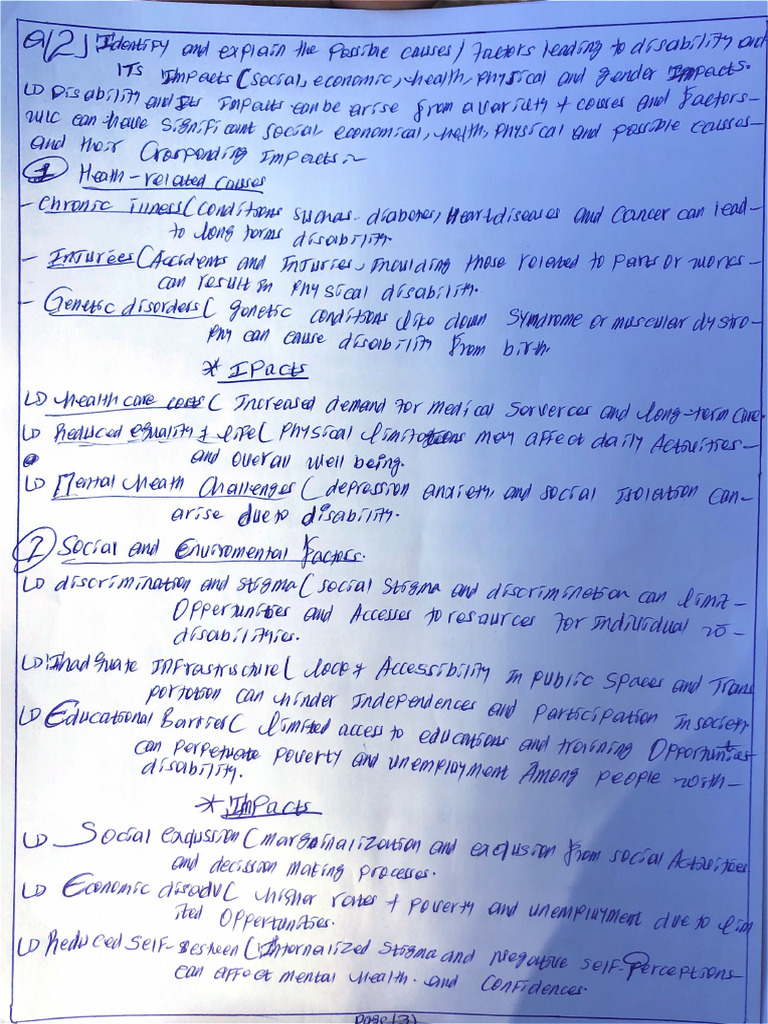 Q/2] Identify and explain the possible causes/ Factors leading to disability and
ITS Impacts (social, economic, health, physical and gender Impacts.
↳ Disability and Its Impacts can be arise from a variety of causes and Factors-
can have significant social, economical, health, physical and possible causes-
and their Crosponding Impacts:~
① Heath-related causes
- Chronic illness (Conditions such as diabetes, Heart diseases and Cancer can lead-
to long terms disability.
- Injurees (Accidents and Injuries, Inculding those related to or works-
can result in physical disability.
- Genetic disorders ( genetic conditions like down Syndrome or muscular dystro-
phy can cause disability from birth.
* IPacts
↳ Health care costs ( Increased demand for medical Serverces and long-term care.
↳ Reduced equality of life ( Physical limitations may affect daily Activities-
and overall well being.
↳ Mental heath Challenges ( depression anxiety, and social Isolation Can-
arise due to disability.
② Social and Enviromental Factors.
↳ discrimination and stigma ( social stigma and discrimination can limit-
Opportunities and Accesses to resources for Individual
disabilities.
↳ Inadguate Infrastructure ( lack of Accessibility In public Spaces and Trans
portation can hinder Independences and participation In society
↳ Educational Barrier ( limited access to educations and training Opportunities
can perpetuate poverty and unemployment Among people with-
disability.
* Impacts
↳ Social exqussion ( marginalization and exclusion from social Activities
and decission making processes.
↳ Economic disadv ( higher rates of poverty and unemployment due to lim
ited Opportunities.
↳ Reduced Self-Esteen ( Internalized Stigma and Negative self-Perceptions
can affect mental health and Confidences.
Page (3)